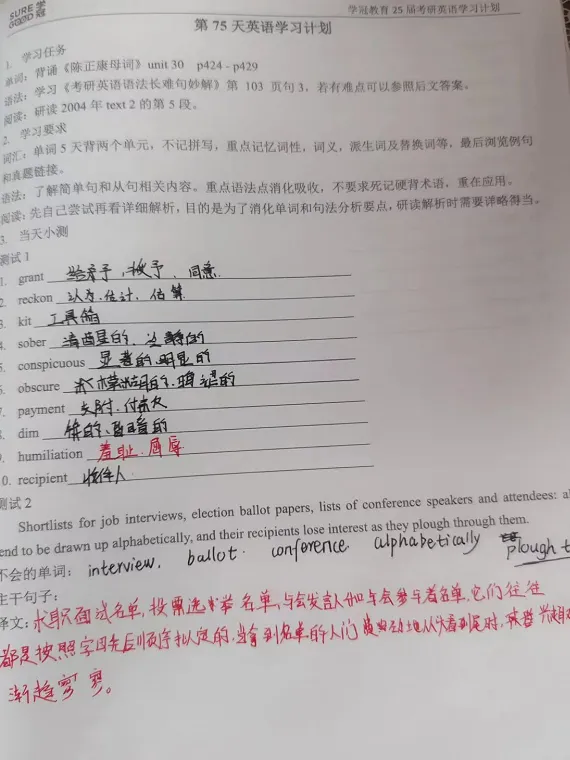 SURE 学
GOOD 冠
学冠教育 25 届考研英语学习计划
第 75 天英语学习计划
1. 学习任务
单词：背诵《陈正康母词》unit 30 p424 - p429
语法：学习《考研英语语法长难句妙解》第 103 页句 3，若有难点可以参照后文答案。
阅读：研读 2004 年 text 2 的第 5 段。
2. 学习要求
词汇：单词 5 天背两个单元，不记拼写，重点记忆词性，词义，派生词及替换词等，最后浏览例句
和真题链接。
语法：了解简单句和从句相关内容。重点语法点消化吸收，不要求死记硬背术语，重在应用。
阅读：先自己尝试再看详细解析，目的是为了消化单词和句法分析要点，研读解析时需要详略得当。
3. 当天小测
测试 1
1. grant 给予，授予、同意
2. reckon 认为、估计、估算
3. kit 工具箱
4. sober 清醒的、冷静的
5. conspicuous 显著的，明显的
6. obscure 模糊的、的
7. payment 支付、付款
8. dim 的、昏暗的
9. humiliation 羞耻、屈辱
10. recipient 收件人
测试 2
Shortlists for job interviews, election ballot papers, lists of conference speakers and attendees: al
tend to be drawn up alphabetically, and their recipients lose interest as they plough through them.
不会的单词： interview, ballot. conference. alphabetically plough t
主干句子：
译文：求职面试名单，投票选举名单，与会发言人和与会参与者名单，它们往往
都是按照字母先后顺序拟定的，当拿到名单的人们费劲地从头看到尾时，兴趣
渐趋寥寥。